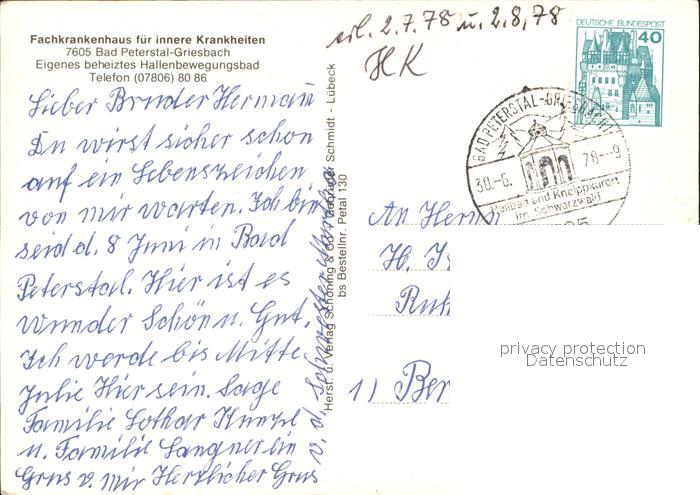 Fachkrankenhaus für innere Krankheiten
7605 Bad Peterstal-Griesbach
Eigenes beheiztes Hallenbewegungsbad
Telefon (07806) 80 86
Lieber Bruder Hermann
Du wirst sicher schon
auf ein Lebenszeichen
von mir warten. Ich bin
seid d. 8 Juni in Bad
Peterstal. Hier ist es
wunder Schön u. Gut.
Ich werde bis Mitte
Julie Hier sein. Sage
Familie Lothar
u. Familie Langner ein
Grus v. mir Herzlicher Grus
v. d. Schwester
Herst. u. Verlag Schöning & Co + Gebrüder Schmidt - Lübeck
bs Bestellnr. Petal 130
erl. 2.7.78 u. 2.8.78
HK
DEUTSCHE BUNDESPOST
40
BAD PETERSTAL-GRIESBACH
30.-6. 78--9
Heilbad und Kneippkurort
im Schwarzwald
An Herrn
H.
1) Ber
privacy protection
Datenschutz